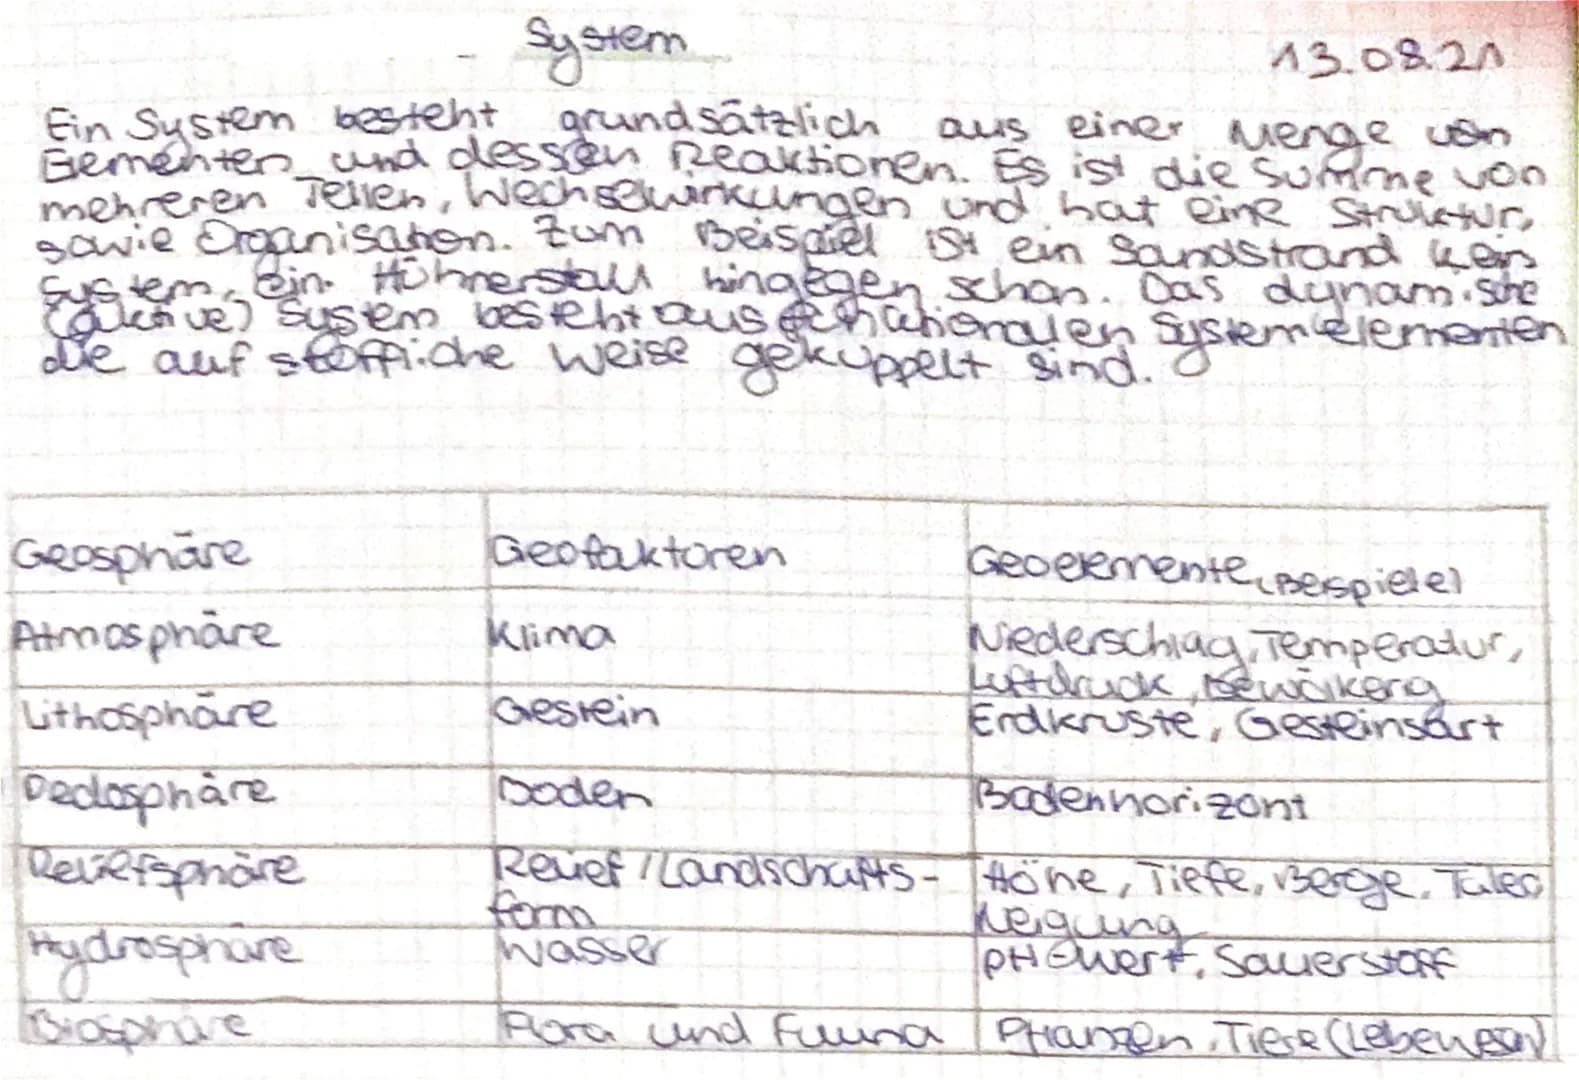 System
13.08.21
Ein System besteht grundsätzlich aus einer Menge von
Elementen und dessen Reaktionen. Es ist die Summe von
mehreren Teilen, Wechselwirkungen und hat eine Struktur,
sowie Organisation. Zum Beispiel ist ein Sandstrand kein
System, ein Hühnerstall hingegen schon. Das dynamische
(aktive) System besteht aus Systemelementen
die auf stoffliche Weise gekuppelt sind.
Geosphäre Geofaktoren Geoelemente (Beispiele)
Atmosphäre Klima Niederschlag, Temperatur,
Luftdruck,
Lithosphäre Gestein Erdkruste, Gesteinsart
Pedosphäre Boden Bodenhorizont
Reliefsphäre Relief / Landschafts- Höhe, Tiefe, Berge, Täler,
form Neigung
Hydrosphäre Wasser pH-Wert, Sauerstoff
Biosphäre Flora und Fauna Pflanzen, Tiere (Lebewesen)